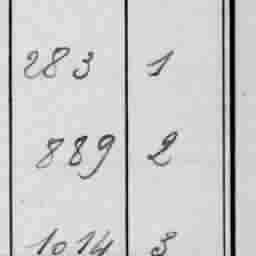 283 1
889 2
1014 3